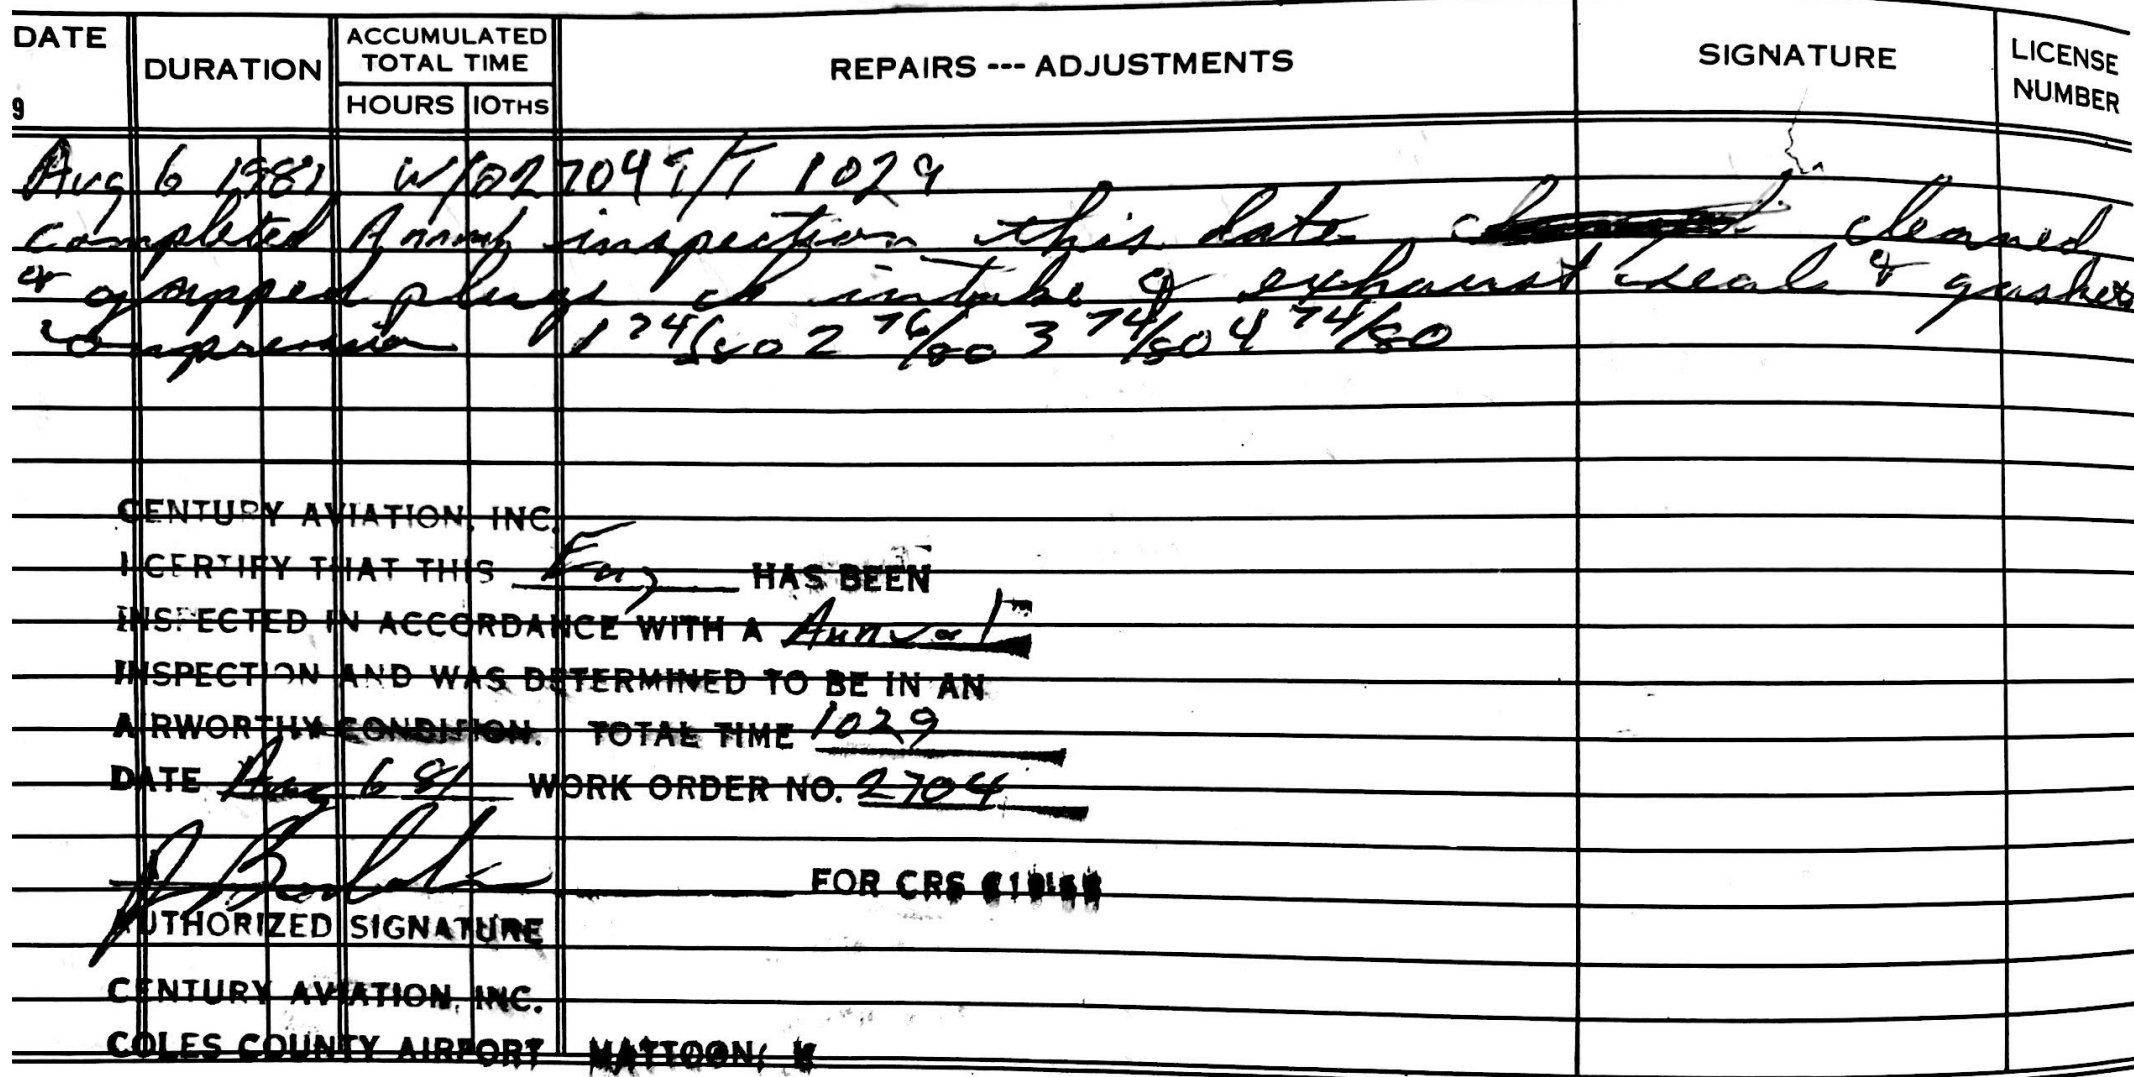 DATE DURATION ACCUMULATED TOTAL TIME REPAIRS --- ADJUSTMENTS SIGNATURE LICENSE NUMBER
9 HOURS 10THS
Aug 6 1981 W/O 2704 T/T 1029
completed Annual inspection this date cleaned
& gapped plugs ck intake & exhaust seals & gaskets
compression 1 74/80 2 76/80 3 74/80 4 74/80
CENTURY AVIATION, INC.
I CERTIFY THAT THIS Eng HAS BEEN
INSPECTED IN ACCORDANCE WITH A Annual
INSPECTION AND WAS DETERMINED TO BE IN AN
AIRWORTHY CONDITION. TOTAL TIME 1029
DATE Aug 6 81 WORK ORDER NO. 2704
FOR CRS
AUTHORIZED SIGNATURE
CENTURY AVIATION, INC.
COLES COUNTY AIRPORT MATTOON,